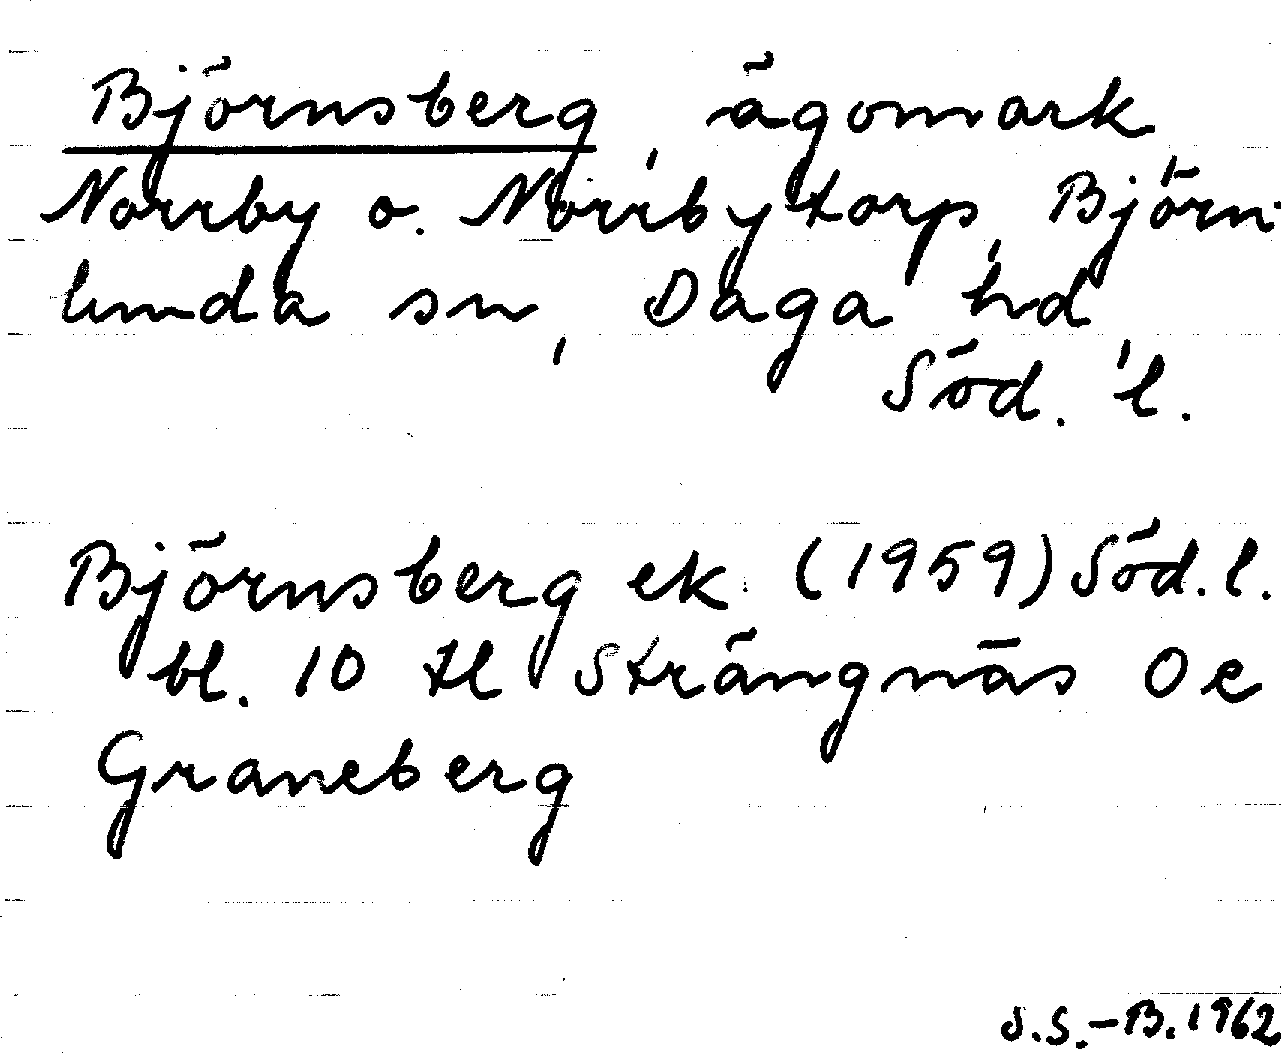 Björnsberg, ägomark
Norrby o. Norrbytorp, Björn-
lunda sn, Daga hd,
Söd. l.
Björnsberg ek. (1959) Söd. l.
bl. 10 tl Strängnäs Oe
Graneberg
S.S.-B. 1962